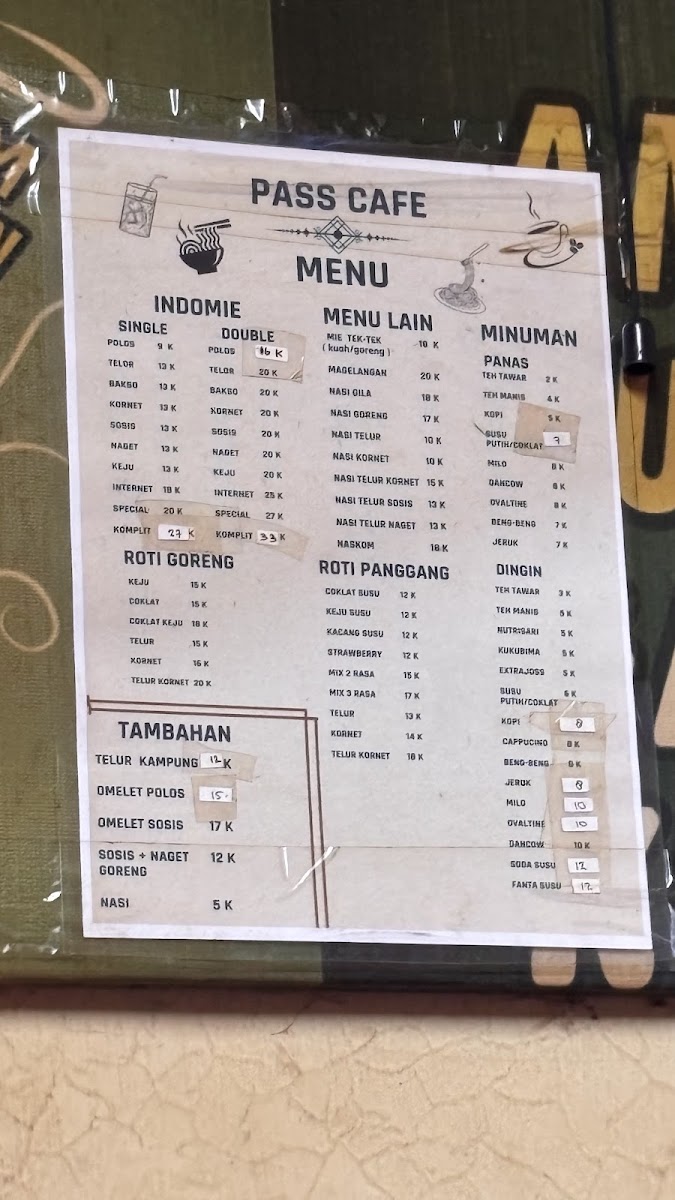 PASS CAFE
MENU
INDOMIE
SINGLE
POLOS 9 K
TELOR 13 K
BAKSO 13 K
KORNET 13 K
SOSIS 13 K
NAGET 13 K
KEJU 13 K
INTERNET 18 K
SPECIAL 20 K
KOMPLIT 27 K
DOUBLE
POLOS 16 K
TELOR 20 K
BAKSO 20 K
KORNET 20 K
SOSIS 20 K
NAGET 20 K
KEJU 20 K
INTERNET 25 K
SPECIAL 27 K
KOMPLIT 33 K
ROTI GORENG
KEJU 15 K
COKLAT 15 K
COKLAT KEJU 18 K
TELUR 15 K
KORNET 16 K
TELUR KORNET 20 K
TAMBAHAN
TELUR KAMPUNG 12 K
OMELET POLOS 15
OMELET SOSIS 17 K
SOSIS + NAGET 12 K
GORENG
NASI 5 K
MENU LAIN
MIE TEK-TEK 18 K
(kuah/goreng)
MAGELANGAN 20 K
NASI GILA 18 K
NASI GORENG 17 K
NASI TELUR 10 K
NASI KORNET 10 K
NASI TELUR KORNET 15 K
NASI TELUR SOSIS 13 K
NASI TELUR NAGET 13 K
NASKOM 18 K
ROTI PANGGANG
COKLAT SUSU 12 K
KEJU SUSU 12 K
KACANG SUSU 12 K
STRAWBERRY 12 K
MIX 2 RASA 15 K
MIX 3 RASA 17 K
TELUR 13 K
KORNET 14 K
TELUR KORNET 18 K
MINUMAN
PANAS
TEH TAWAR 2 K
TEH MANIS 4 K
KOPI 5 K
SUSU 7
PUTIH/COKLAT
MILO 8 K
DANCOW
OVALTINE 8 K
BENG-BENG 7 K
JERUK 7 K
DINGIN
TEH TAWAR 3 K
TEH MANIS 5 K
NUTRISARI 5 K
KUKUBIMA 5 K
EXTRAJOSS 5 K
SUSU 6 K
PUTIH/COKLAT
KOPI 8
CAPPUCINO 8 K
BENG-BENG
JERUK 8
MILO 10
OVALTINE 10
DANCOW 10 K
SODA SUSU 12
FANTA SUSU 12